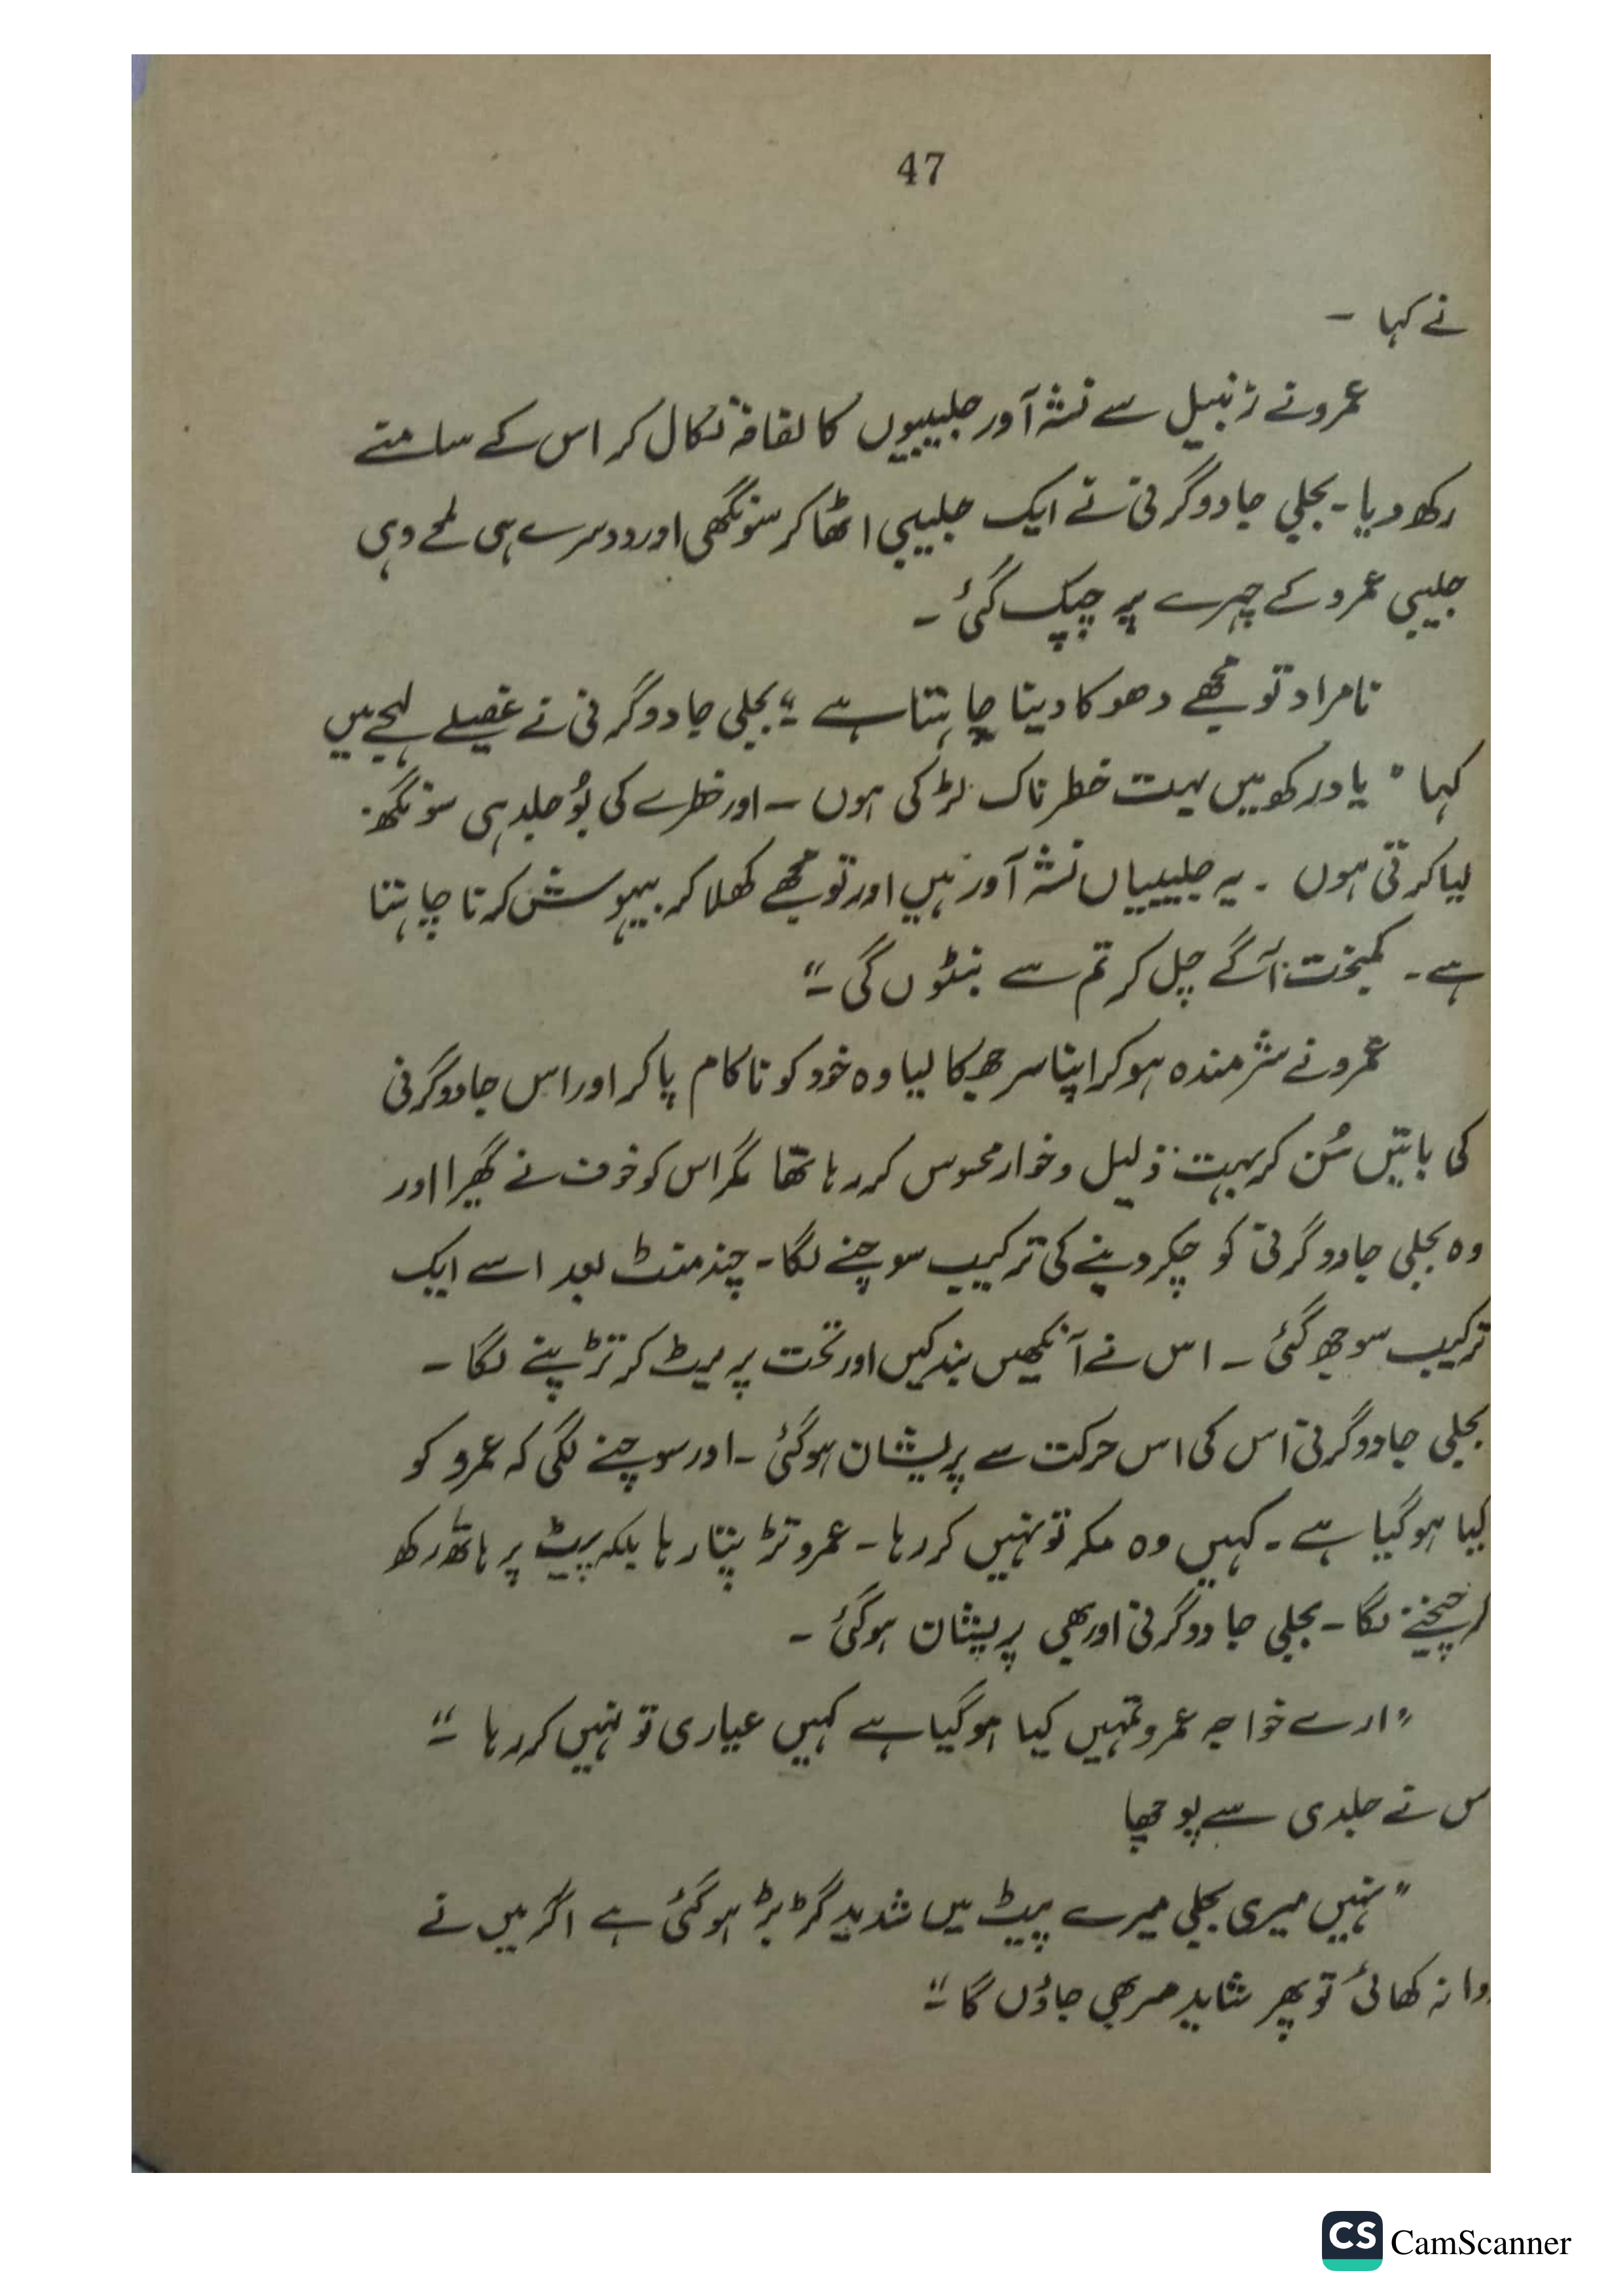 47
نے کہا ۔
عمرو نے زنبیل سے نشہ آور جلیبیوں کا لفافہ نکال کر اس کے سامنے
رکھ دیا۔ بجلی جادوگرنی نے ایک جلیبی اٹھا کر سونگھی اور دوسرے ہی لمحے وہی
جلیبی عمرو کے چہرے پر چپک گئی ۔
نامراد تو مجھے دھوکا دینا چاہتا ہے ؛" بجلی جادوگرنی نے غصیلے لہجے میں
کہا " یاد رکھو میں بہت خطرناک لڑکی ہوں ۔ اور خطرے کی بُو جلد ہی سونگھ
لیا کرتی ہوں ۔ یہ جلیبیاں نشہ آور ہیں اور تو مجھے کھلا کر بیہوش کرنا چاہتا
ہے ۔ کمبخت آگے چل کر تم سے نبٹوں گی ۔"
عمرو نے شرمندہ ہو کر اپنا سر جھکا لیا وہ خود کو ناکام پا کر اور اس جادوگرنی
کی باتیں سُن کر بہت ذلیل و خوار محسوس کر رہا تھا مگر اس کو خوف نے گھیرا اور
وہ بجلی جادوگرنی کو چکر دینے کی ترکیب سوچنے لگا۔ چند منٹ بعد اسے ایک
ترکیب سوجھ گئی ۔ اس نے آنکھیں بند کیں اور تخت پر لیٹ کر تڑپنے لگا ۔
بجلی جادوگرنی اس کی اس حرکت سے پریشان ہو گئی ۔ اور سوچنے لگی کہ عمرو کو
کیا ہو گیا ہے ۔ کہیں وہ مکر تو نہیں کر رہا ۔ عمرو تڑپتا رہا بلکہ پیٹ پر ہاتھ رکھ
ر چیخنے لگا ۔ بجلی جادوگرنی اور بھی پریشان ہو گئی ۔
" ارے خواجہ عمرو تمہیں کیا ہو گیا ہے کہیں عیاری تو نہیں کر رہا ۔"
س نے جلدی سے پوچھا
" نہیں میری بجلی میرے پیٹ میں شدید گڑبڑ ہو گئی ہے اگر میں نے
دوا نہ کھائی تو پھر شاید مر بھی جاؤں گا ۔"
CS CamScanner